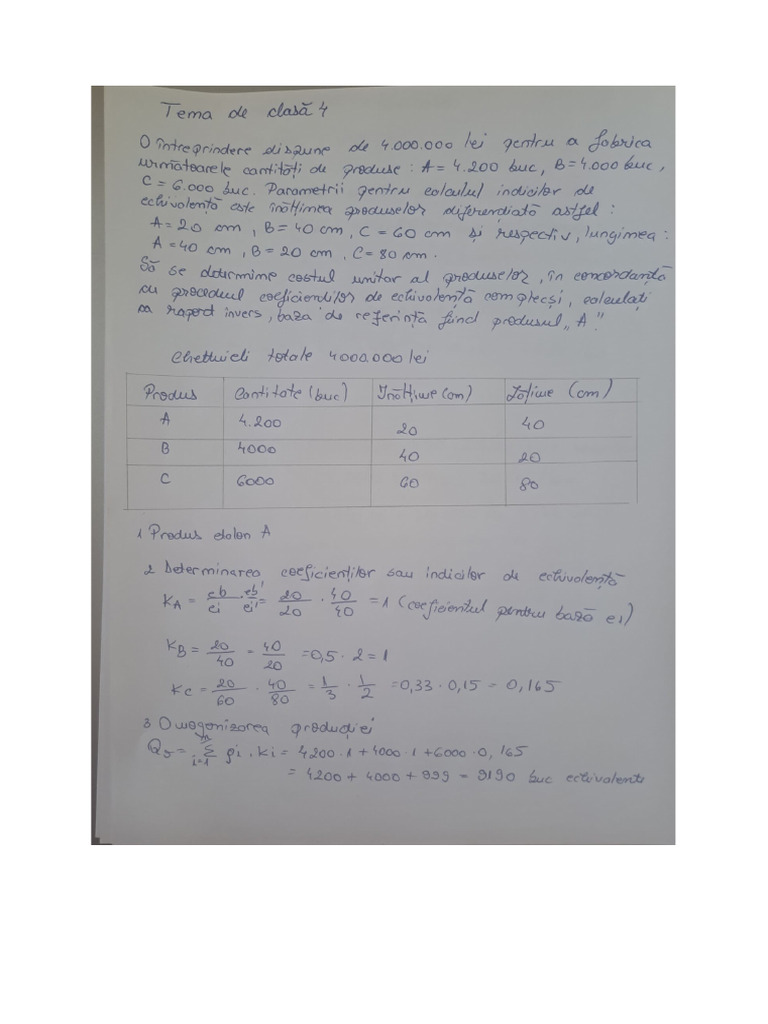 Tema de clasă 4
O întreprindere dispune de 4.000.000 lei pentru a fabrica
următoarele cantități de produse : A = 4.200 buc, B = 4.000 buc,
C = 6.000 buc. Parametrii pentru calculul indicilor de
echivalență este înălțimea produselor diferențiată astfel :
A = 20 cm, B = 40 cm, C = 60 cm și respectiv, lungimea :
A = 40 cm, B = 20 cm, C = 80 cm.
Să se determine costul unitar al produselor, în concordanță
cu procedeul coeficienților de echivalență complecși, calculați
ca raport invers, baza de referință fiind produsul „A".
Cheltuieli totale 4000.000 lei
Produs Cantitate (buc) Înălțime (cm) Lățime (cm)
A 4.200 20 40
B 4000 40 20
C 6000 60 80
1 Produs etalon A
2 Determinarea coeficienților sau indicilor de echivalență
KA = eb/ei · eb'/ei' = 20/20 · 40/40 = 1 (coeficientul pentru bază e 1)
KB = 20/40 = 40/20 = 0,5 · 2 = 1
Kc = 20/60 · 40/80 = 1/3 · 1/2 = 0,33 · 0,15 = 0,165
3 Omogenizarea producției
= Σ i=1 · Ki = 4200 · 1 + 4000 · 1 + 6000 · 0,165
= 4200 + 4000 + 999 = 9190 buc echivalente